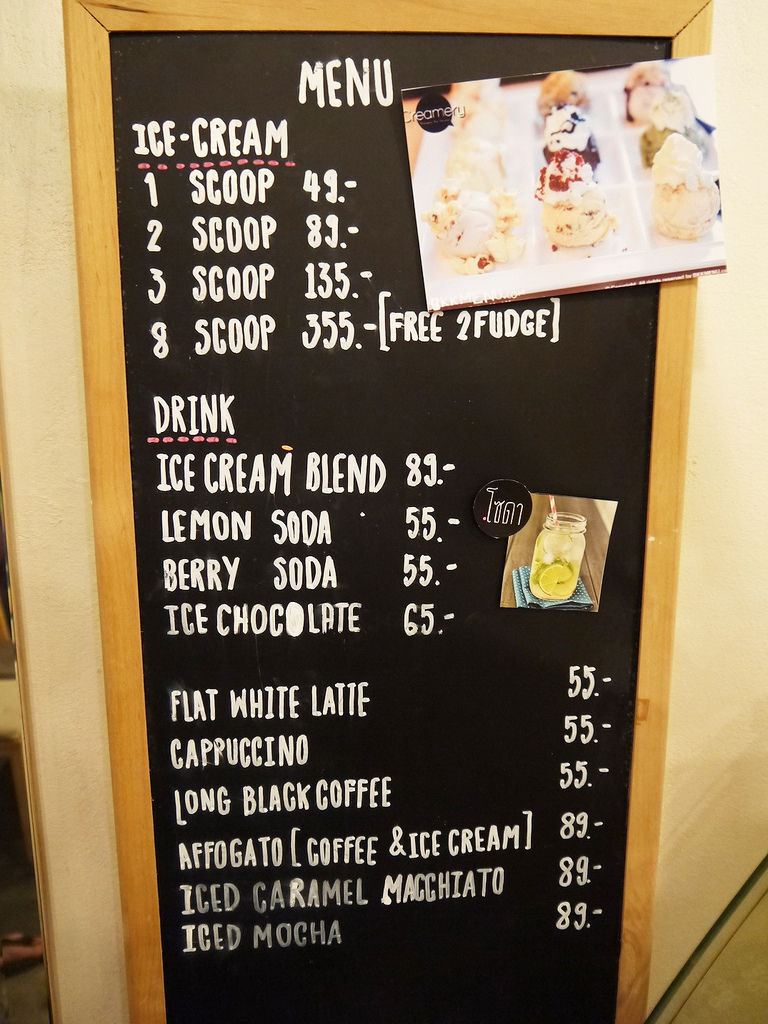 MENU
Creamery
ICE-CREAM
1 SCOOP 49.-
2 SCOOP 89.-
3 SCOOP 135.-
8 SCOOP 355.-[FREE 2FUDGE]
DRINK
ICE CREAM BLEND 89.-
LEMON SODA 55.-
BERRY SODA 55.-
ICE CHOCOLATE 65.-
โซดา
FLAT WHITE LATTE 55.-
CAPPUCCINO 55.-
LONG BLACK COFFEE 55.-
AFFOGATO [COFFEE & ICE CREAM] 89.-
ICED CARAMEL MACCHIATO 89.-
ICED MOCHA 89.-